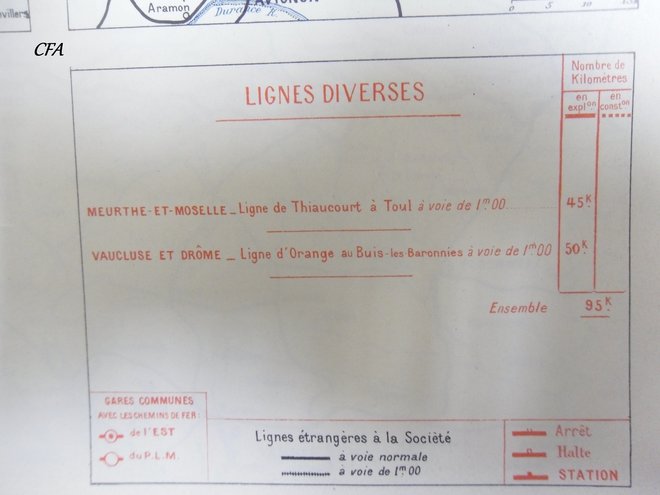 villers
Aramon
Durance R.
0 5 10
CFA
LIGNES DIVERSES
Nombre de
Kilomètres
en explon
en conston
MEURTHE-ET-MOSELLE_Ligne de Thiaucourt à Toul à voie de 1m00 45K
VAUCLUSE ET DRÔME _ Ligne d'Orange au Buis-les-Baronnies à voie de 1m00 50K
Ensemble 95K
GARES COMMUNES
AVEC LES CHEMINS DE FER:
de l'EST
du P.L.M.
Lignes étrangères à la Société
à voie normale
à voie de 1m00
Arrêt
Halte
STATION